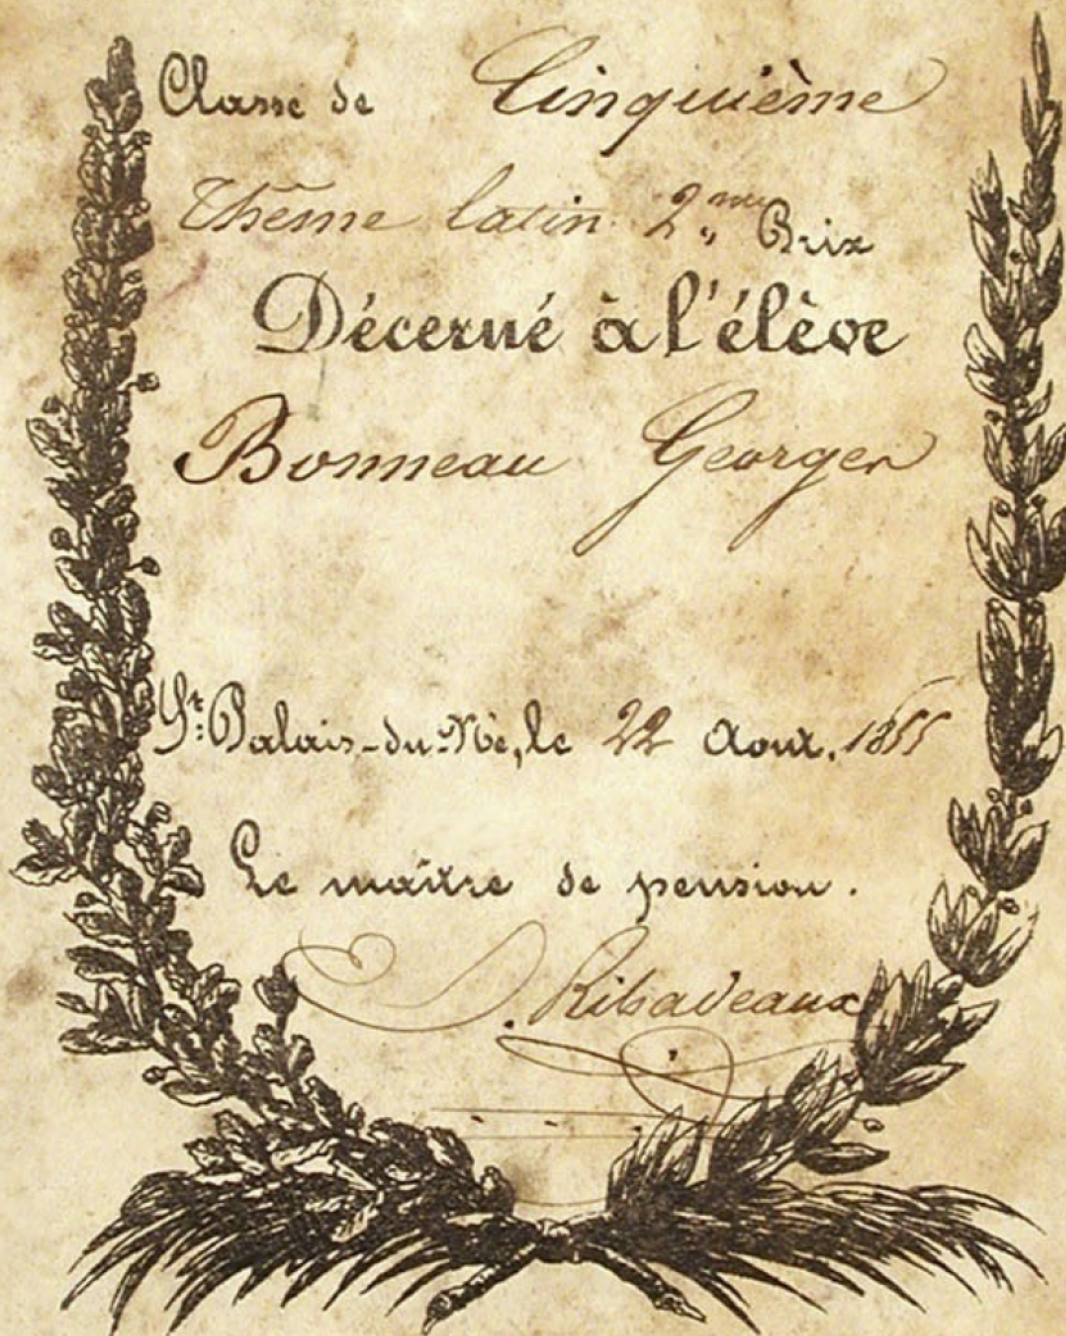 Classe de Cinquième
Thême latin 2.me Prix
Décerné à l'élève
Bonneau Georges
St. Palais-du-Né, le 22 Aout, 1855
Le maître de pension.
Ribadeaux